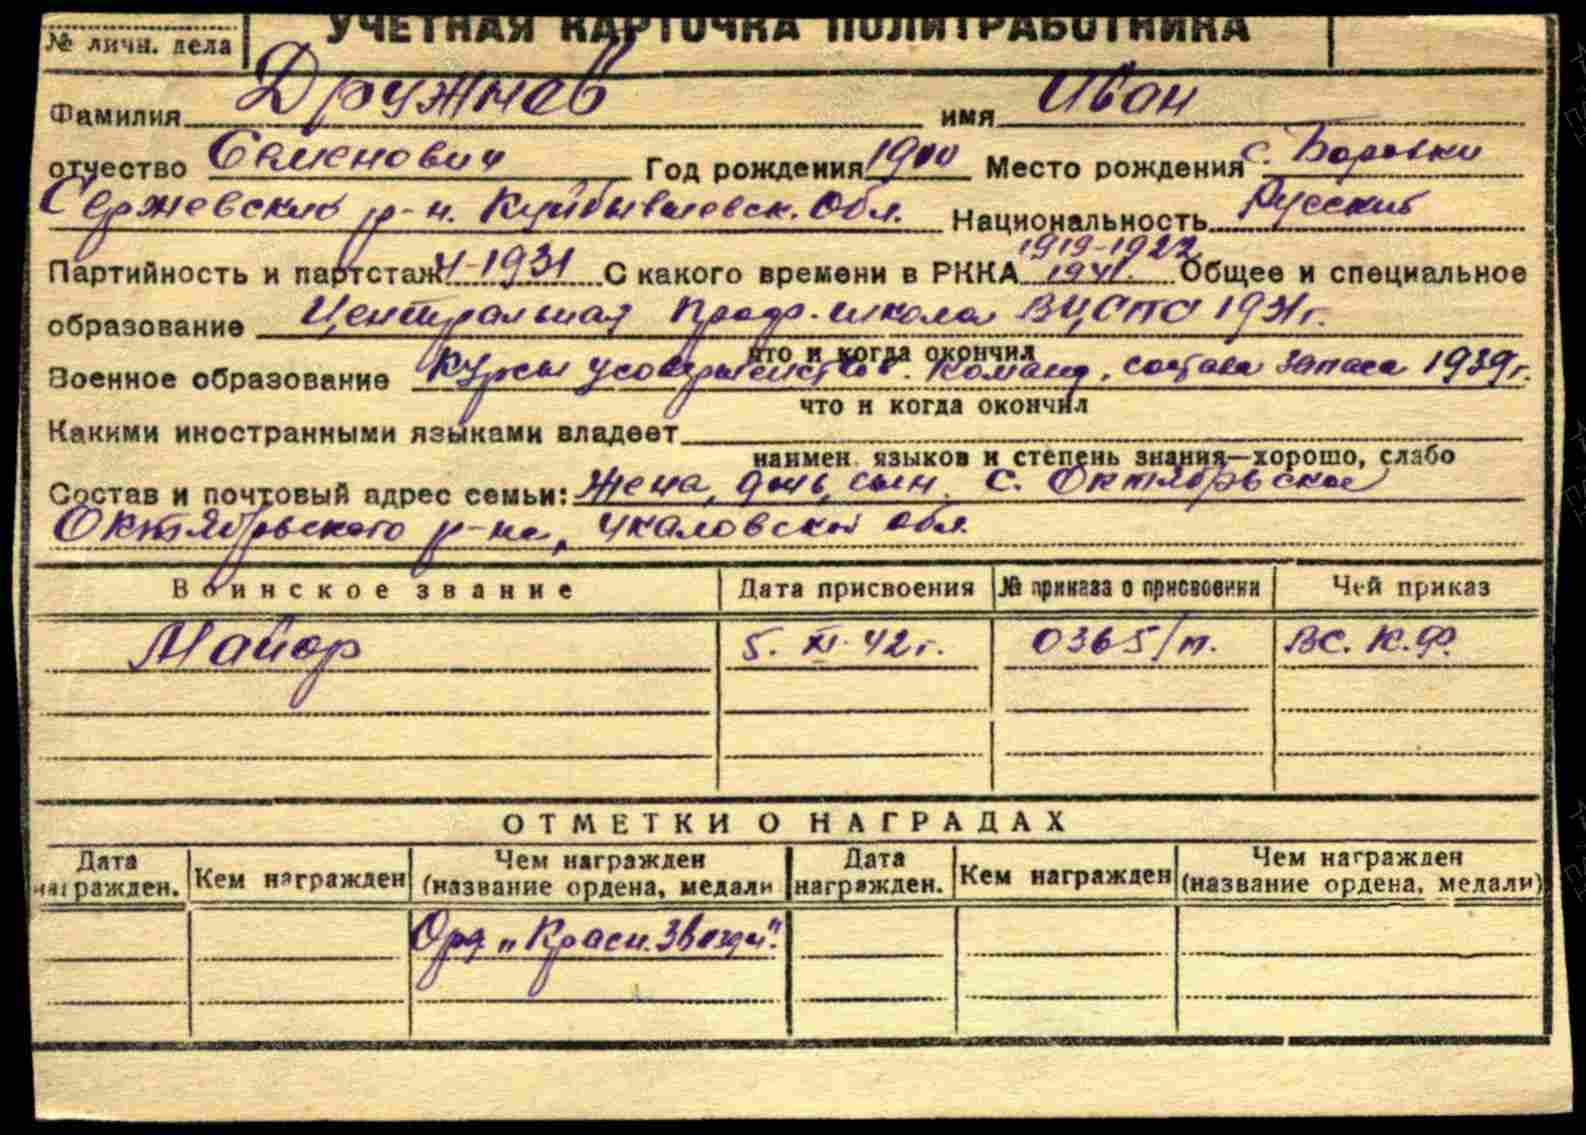 № личн. дела
УЧЕТНАЯ КАРТОЧКА ПОЛИТРАБОТНИКА
Фамилия Дружнев имя Иван
отчество Семенович Год рождения 1900 Место рождения с. Боровки
Сержневского р-н. Куйбышевск. Обл. Национальность Русский
1919-1922
Партийность и партстаж 1931 С какого времени в РККА 1941. Общее и специальное
образование Центральная Проф. школа ВЦСПС 1931г.
что и когда окончил
Военное образование Курсы усовершенств. Команд. состава запаса 1939г.
что и когда окончил
Какими иностранными языками владеет
наимен. языков и степень знания—хорошо, слабо
Состав и почтовый адрес семьи: Жена, дочь, сын. с. Октябрьское
Октябрьского р-на, Чкаловской обл.
Воинское звание Дата присвоения № приказа о присвоении Чей приказ
Майор 5. XI. 42 г. 0365/п. ВС. К.Ф.
ОТМЕТКИ О НАГРАДАХ
Дата награжден. Кем награжден Чем награжден (название ордена, медали Дата награжден. Кем награжден Чем награжден (название ордена, медали)
Орд „Красн. Звезды".